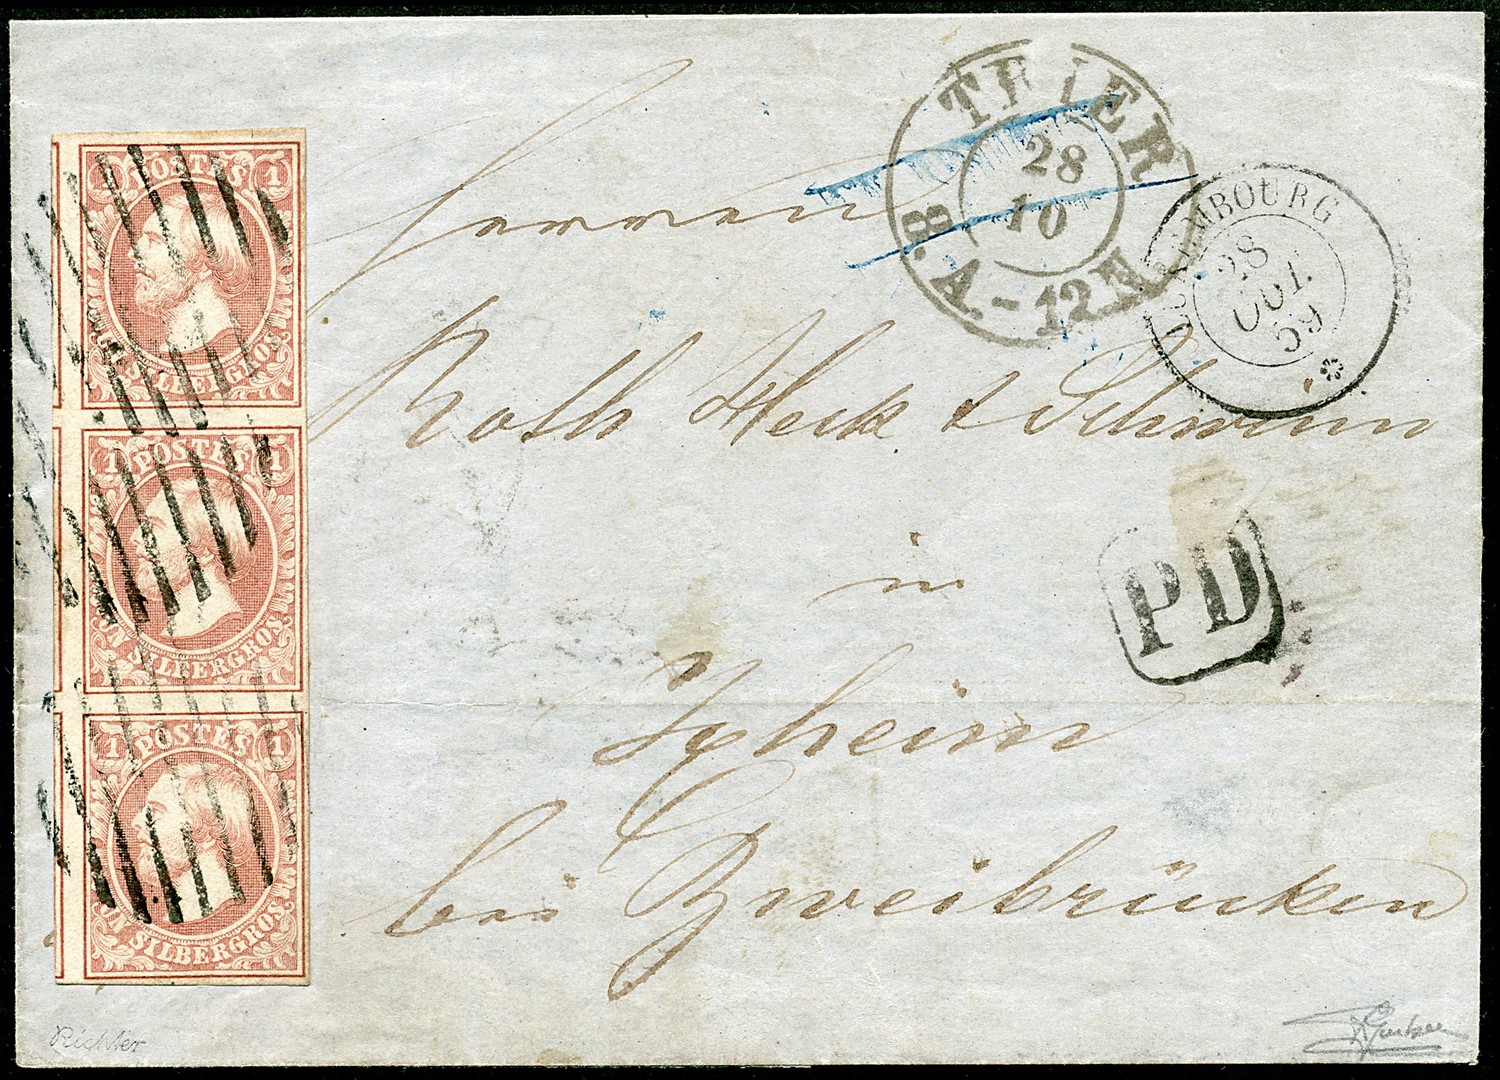 1 POSTES 1
UN SILBERGROS.
1 POSTES 1
UN SILBERGROS.
1 POSTES 1
UN SILBERGROS.
TRIER
28
10
B. A. - 12 N
LUXEMBOURG
28
OCT.
59
Herren
Roth Heck & Schwinn
PD
in
Ixheim
bei Zweibrücken
Richter